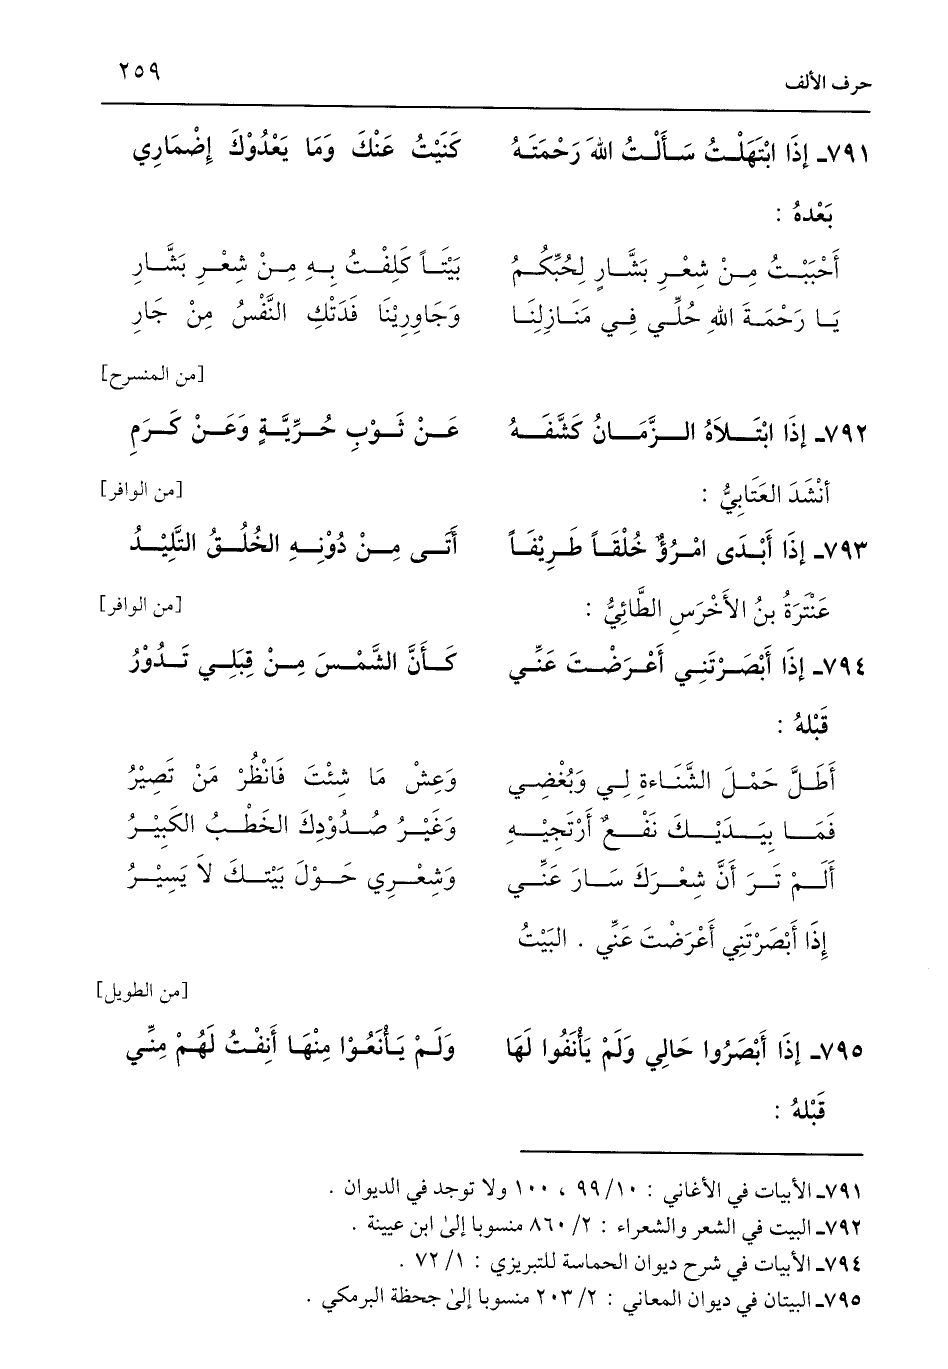 حرف الألف ٢٥٩
٧٩١ـ إِذَا ابْتَهَلْتُ سَأَلْتُ اللهَ رَحْمَتَهُ كَنَيْتُ عَنْكَ وَمَا يَعْدُوْكَ إِضْمَارِي
بَعْدهُ :
أَحْبَبْتُ مِنْ شِعْرِ بَشَّارٍ لِحُبِّكُمُ بَيْتَاً كَلِفْتُ بِهِ مِنْ شِعْرِ بَشَّارِ
يَا رَحْمَةَ اللهِ حُلِّي فِي مَنَازِلِنَا وَجَاوِرِيْنَا فَدَتْكِ النَّفْسُ مِنْ جَارِ
[من المنسرح]
٧٩٢ـ إِذَا ابْتَلاَهُ الزَّمَانُ كَشَّفَهُ عَنْ ثَوْبِ حُرِّيَّةٍ وَعَنْ كَرَمِ
أنْشَدَ العَتَابِيُّ : [من الوافر]
٧٩٣ـ إِذَا أَبْدَى امْرُؤٌ خُلْقَاً طَرِيْفَاً أَتَى مِنْ دُوْنِهِ الخُلُقُ التَّلِيْدُ
عَنْتَرَةُ بنُ الأَخْرَسِ الطَّائِيُّ : [من الوافر]
٧٩٤ـ إِذَا أَبْصَرْتَنِي أَعْرَضْتَ عَنِّي كَأَنَّ الشَّمْسَ مِنْ قِبَلِي تَدُوْرُ
قَبْلهُ :
أَطَلَّ حَمْلَ الشَّنَاءةِ لِي وَبُغْضِي وَعِشْ مَا شِئْتَ فَانْظُرْ مَنْ تَصِيْرُ
فَمَا بِيَدَيْكَ نَفْعٌ أَرْتَجِيْهِ وَغَيْرُ صُدُوْدِكَ الخَطْبُ الكَبِيْرُ
أَلَمْ تَرَ أَنَّ شِعْرَكَ سَارَ عَنِّي وَشِعْرِي حَوْلَ بَيْتِكَ لاَ يَسِيْرُ
إِذَا أَبْصَرْتَنِي أَعْرَضْتَ عَنِّي . البَيْتُ
[من الطويل]
٧٩٥ـ إِذَا أَبْصَرُوا حَالِي وَلَمْ يَأْنَفُوا لَهَا وَلَمْ يَأْنَعُوْا مِنْهَا أَنِفْتُ لَهُمْ مِنِّي
قَبْلهُ :
٧٩١ـ الأبيات في الأغاني : ١٠/ ٩٩ ، ١٠٠ ولا توجد في الديوان .
٧٩٢ـ البيت في الشعر والشعراء : ٢/ ٨٦٠ منسوبا إلىٰ ابن عيينة .
٧٩٤ـ الأبيات في شرح ديوان الحماسة للتبريزي : ١/ ٧٢ .
٧٩٥ـ البيتان في ديوان المعاني : ٢/ ٢٠٣ منسوبا إلىٰ جحظة البرمكي .